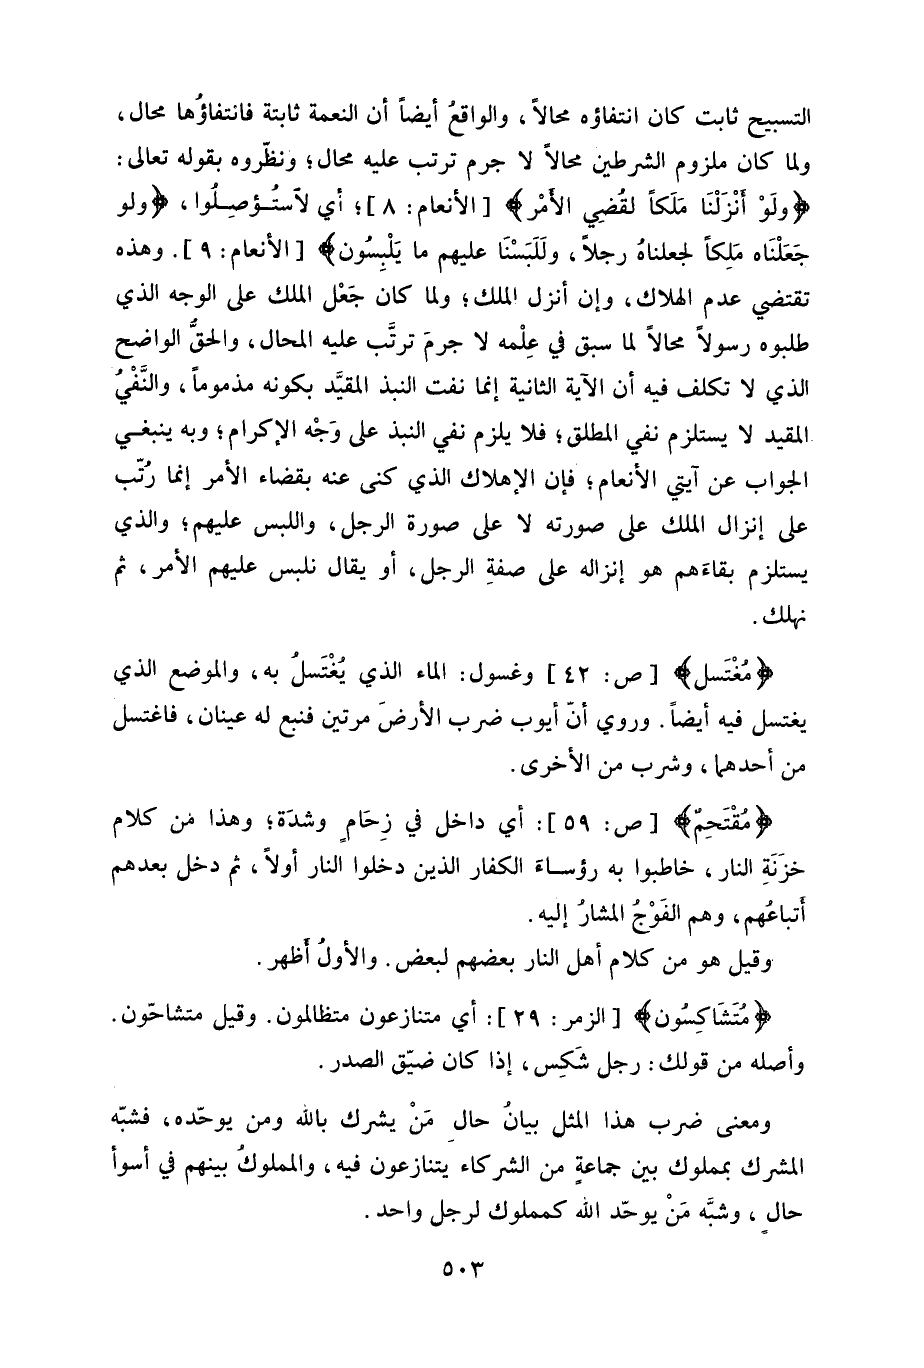 التسبيح ثابت كان انتفاؤه محالاً، والواقعُ أيضاً أن النعمة ثابتة فانتفاؤُها محال،
ولما كان ملزوم الشرطين محالاً لا جرم ترتب عليه محال؛ ونظّروه بقوله تعالى:
﴿ولَوْ أَنْزَلْنَا مَلَكاً لقُضِي الأَمْر﴾ [الأنعام: ٨]؛ أي لاَستُـؤصِـلُوا، ﴿ولو
جَعَلْنَاه مَلِكاً لجعلناهُ رجلاً، وللَبَسْنَا عليهم ما يَلْبِسُون﴾ [الأنعام: ٩]. وهذه
تقتضي عدم الهلاك، وإن أنزل الملك؛ ولما كان جَعْل الملك على الوجه الذي
طلبوه رسولاً محالاً لما سبق في عِلْمه لا جرمَ ترتَّب عليه المحال، والحقُّ الواضح
الذي لا تكلف فيه أن الآية الثانية إنما نفت النبذ المقيَّد بكونه مذموماً، والنَّفْيُ
المقيد لا يستلزم نفي المطلق؛ فلا يلزم نفي النبذ على وَجْه الإكرام؛ وبه ينبغـي
الجواب عن آيتي الأنعام؛ فإن الإهلاك الذي كنى عنه بقضاء الأمر إنما رُتّب
على إنزال الملك على صورته لا على صورة الرجل، واللبس عليهم؛ والذي
يستلزم بقاءَهم هو إنزاله على صفةِ الرجل، أو يقال نلبس عليهم الأمر، ثم
نهلك.
﴿مُغْتَسل﴾ [ص: ٤٢] وغسول: الماء الذي يُغْتَسلُ به، والموضع الذي
يغتسل فيه أيضاً. وروي أنّ أيوب ضرب الأرضَ مرتين فنبع له عينان، فاغتسل
من أحدهما، وشرب من الأخرى.
﴿مُقْتَحِمٌ﴾ [ص: ٥٩]: أي داخل في زِحَامٍ وشدَة؛ وهذا من كلام
خزَنَةِ النار، خاطبوا به رؤسـاءَ الكفار الذين دخلوا النار أولاً، ثم دخل بعدهم
أَتباعُهم، وهم الفَوْجُ المشارُ إليه.
وقيل هو من كلام أهل النار بعضهم لبعض. والأولُ أَظهر.
﴿مُتَشَاكِسُون﴾ [الزمر: ٢٩]: أي متنازعون متظالمون. وقيل متشاحّون.
وأصله من قولك: رجل شَكِس، إذا كان ضيّق الصدر.
ومعنى ضرب هذا المثل بيانُ حالِ مَنْ يشرك بالله ومن يوحّده، فشبّه
المشرك بمملوك بين جماعةٍ من الشركاء يتنازعون فيه، والمملوكُ بينهم في أسوأ
حالٍ، وشبَّه مَنْ يوحّد الله كمملوك لرجل واحد.
٥٠٣